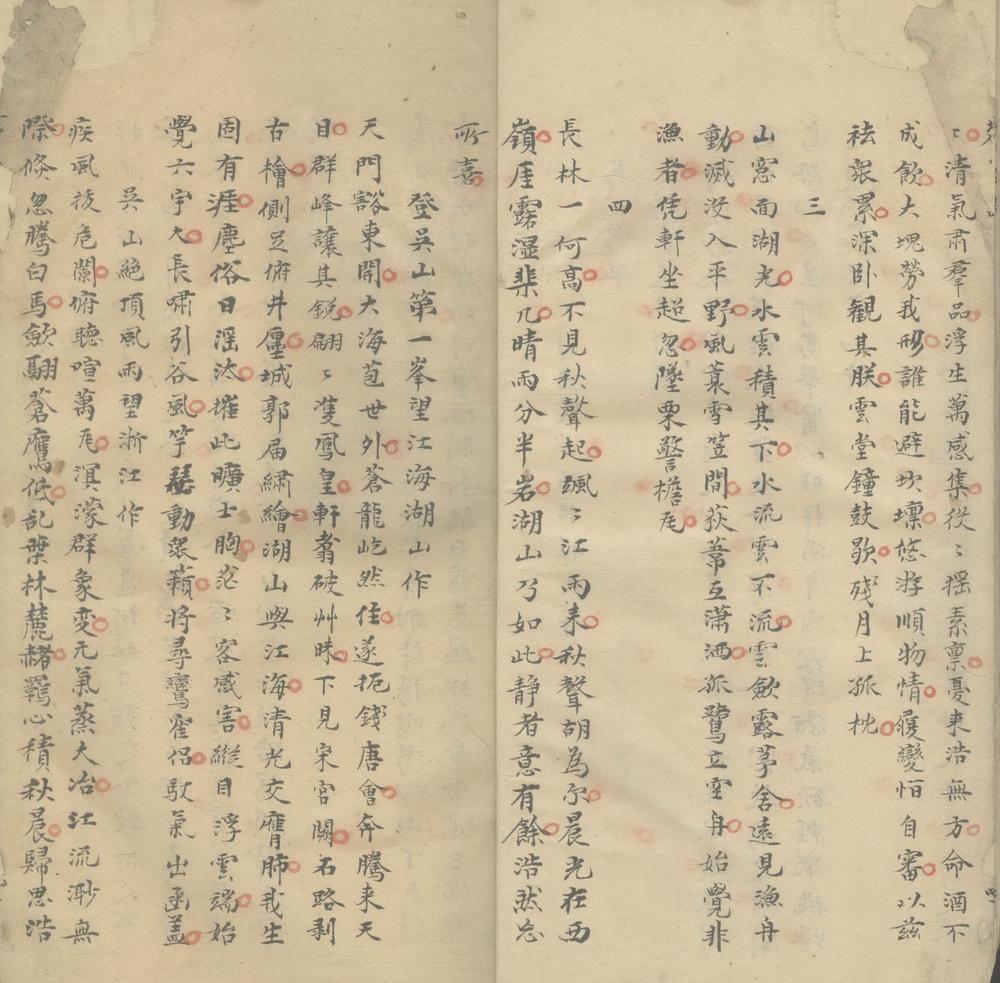 清氣肅羣品浮生萬感集役〻摇素禀憂来浩無方命酒不
成飲大塊勞我形誰能避坎壈悠游順物情履變恒自審以兹
袪衆累深卧觀其朕雲堂鐘鼓歇殘月上孤枕
三
山窓面湖光水雲積其下水流雲不流雲歛露茅舍遠見漁舟
動滅没入平野風蓑雪笠間荻葦互瀟洒孤鷺立空舟始覺非
漁者凭軒坐超忽墜栗警檐瓦
四
長林一何高不見秋聲起颯〻江雨来秋聲胡為尔晨光在西
嶺厓露湿棐几晴雨分半岩湖山乃如此静者意有餘浩然忘
所喜
登吳山第一峯望江海湖山作
天門豁東開大海苞世外蒼龍屹然住遂扼錢唐會奔騰来天
目群峰讓其銳翩〻雙鳳皇軒翥破艸昧下見宋宫闕石路剥
古檜側足俯井廛城郭届繡繪湖山與江海清光交膺肺我生
固有涯塵俗日滛汰摧此曠士胸茫〻客感害縱目浮雲端始
覺六宇大長嘯引谷風竽瑟動衆籟将尋鸞寉侣馭氣出函蓋
吳山絶頂風雨望浙江作
疾風拔危闌俯聽喧萬瓦溟濛群象变元氣蒸大冶江流渺無
際倏忽騰白馬歛翮蒼鷹低乱葉林麓赭羇心積秋晨歸思浩